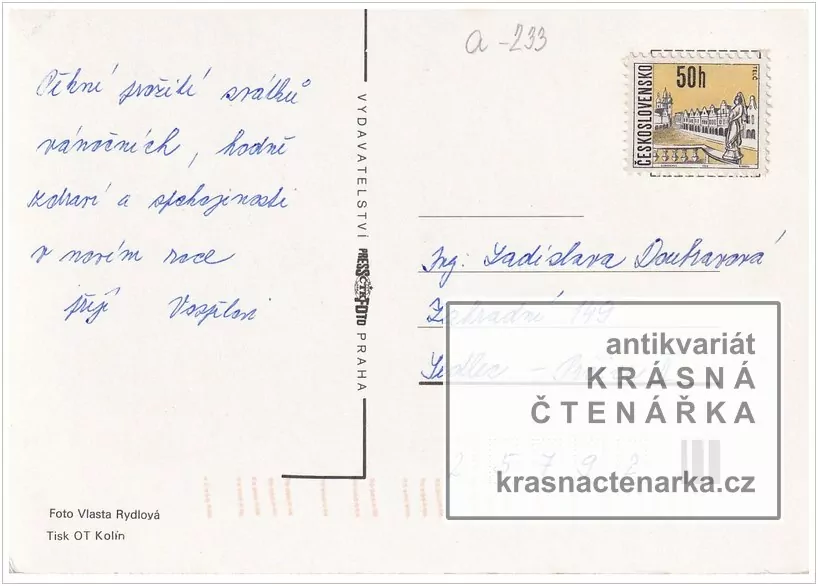 a-233
Pěkné prožití svátků
vánočních, hodně
zdraví a spokojenosti
v novém roce
přejí Vospělovi
VYDAVATELSTVÍ PRESSFOTO PRAHA
ČTK
ČESKOSLOVENSKO
50h
TELČ
Ing. Ladislava Doubravová
Zahradní 149
Sedlec -
25792
antikvariát
KRÁSNÁ
ČTENÁŘKA
krasnactenarka.cz
Foto Vlasta Rydlová
Tisk OT Kolín